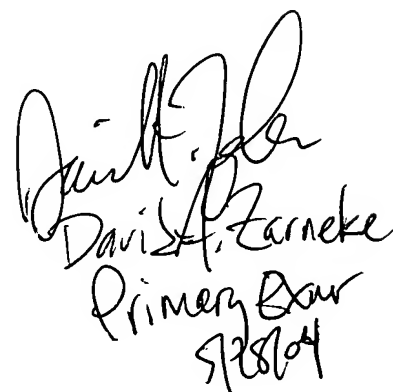 David A. Zarneke
Primary Exmr
5/28/04